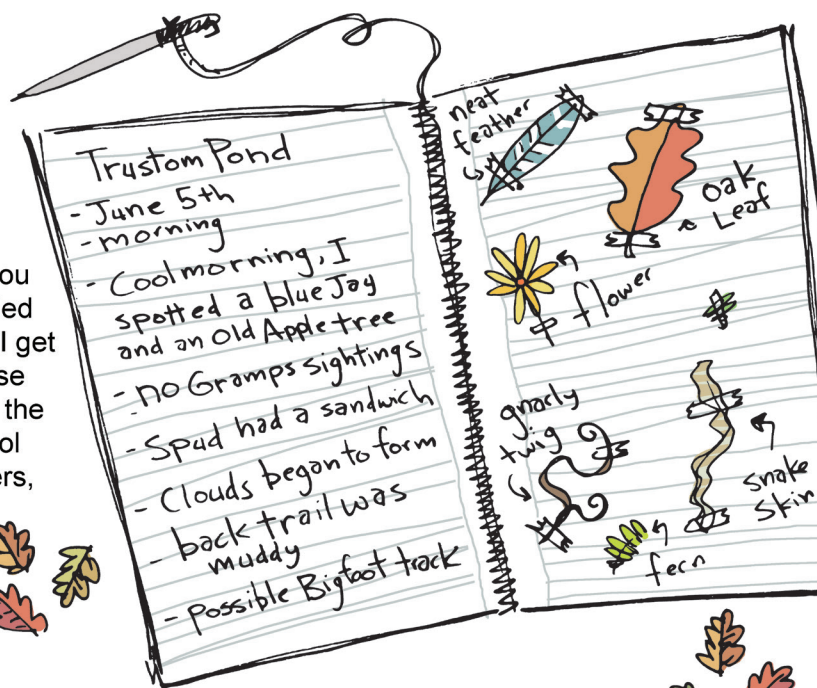 ou
ed
I get
se
the
ol
ers,
Trustom Pond
- June 5th
- morning
- Cool morning, I
spotted a blue Jay
and an Old Apple tree
- no Gramps sightings
- Spud had a sandwich
- Clouds began to form
- back trail was
muddy
- possible Bigfoot track
neat
feather
oak
Leaf
flower
gnarly
twig
snake
Skin
fern